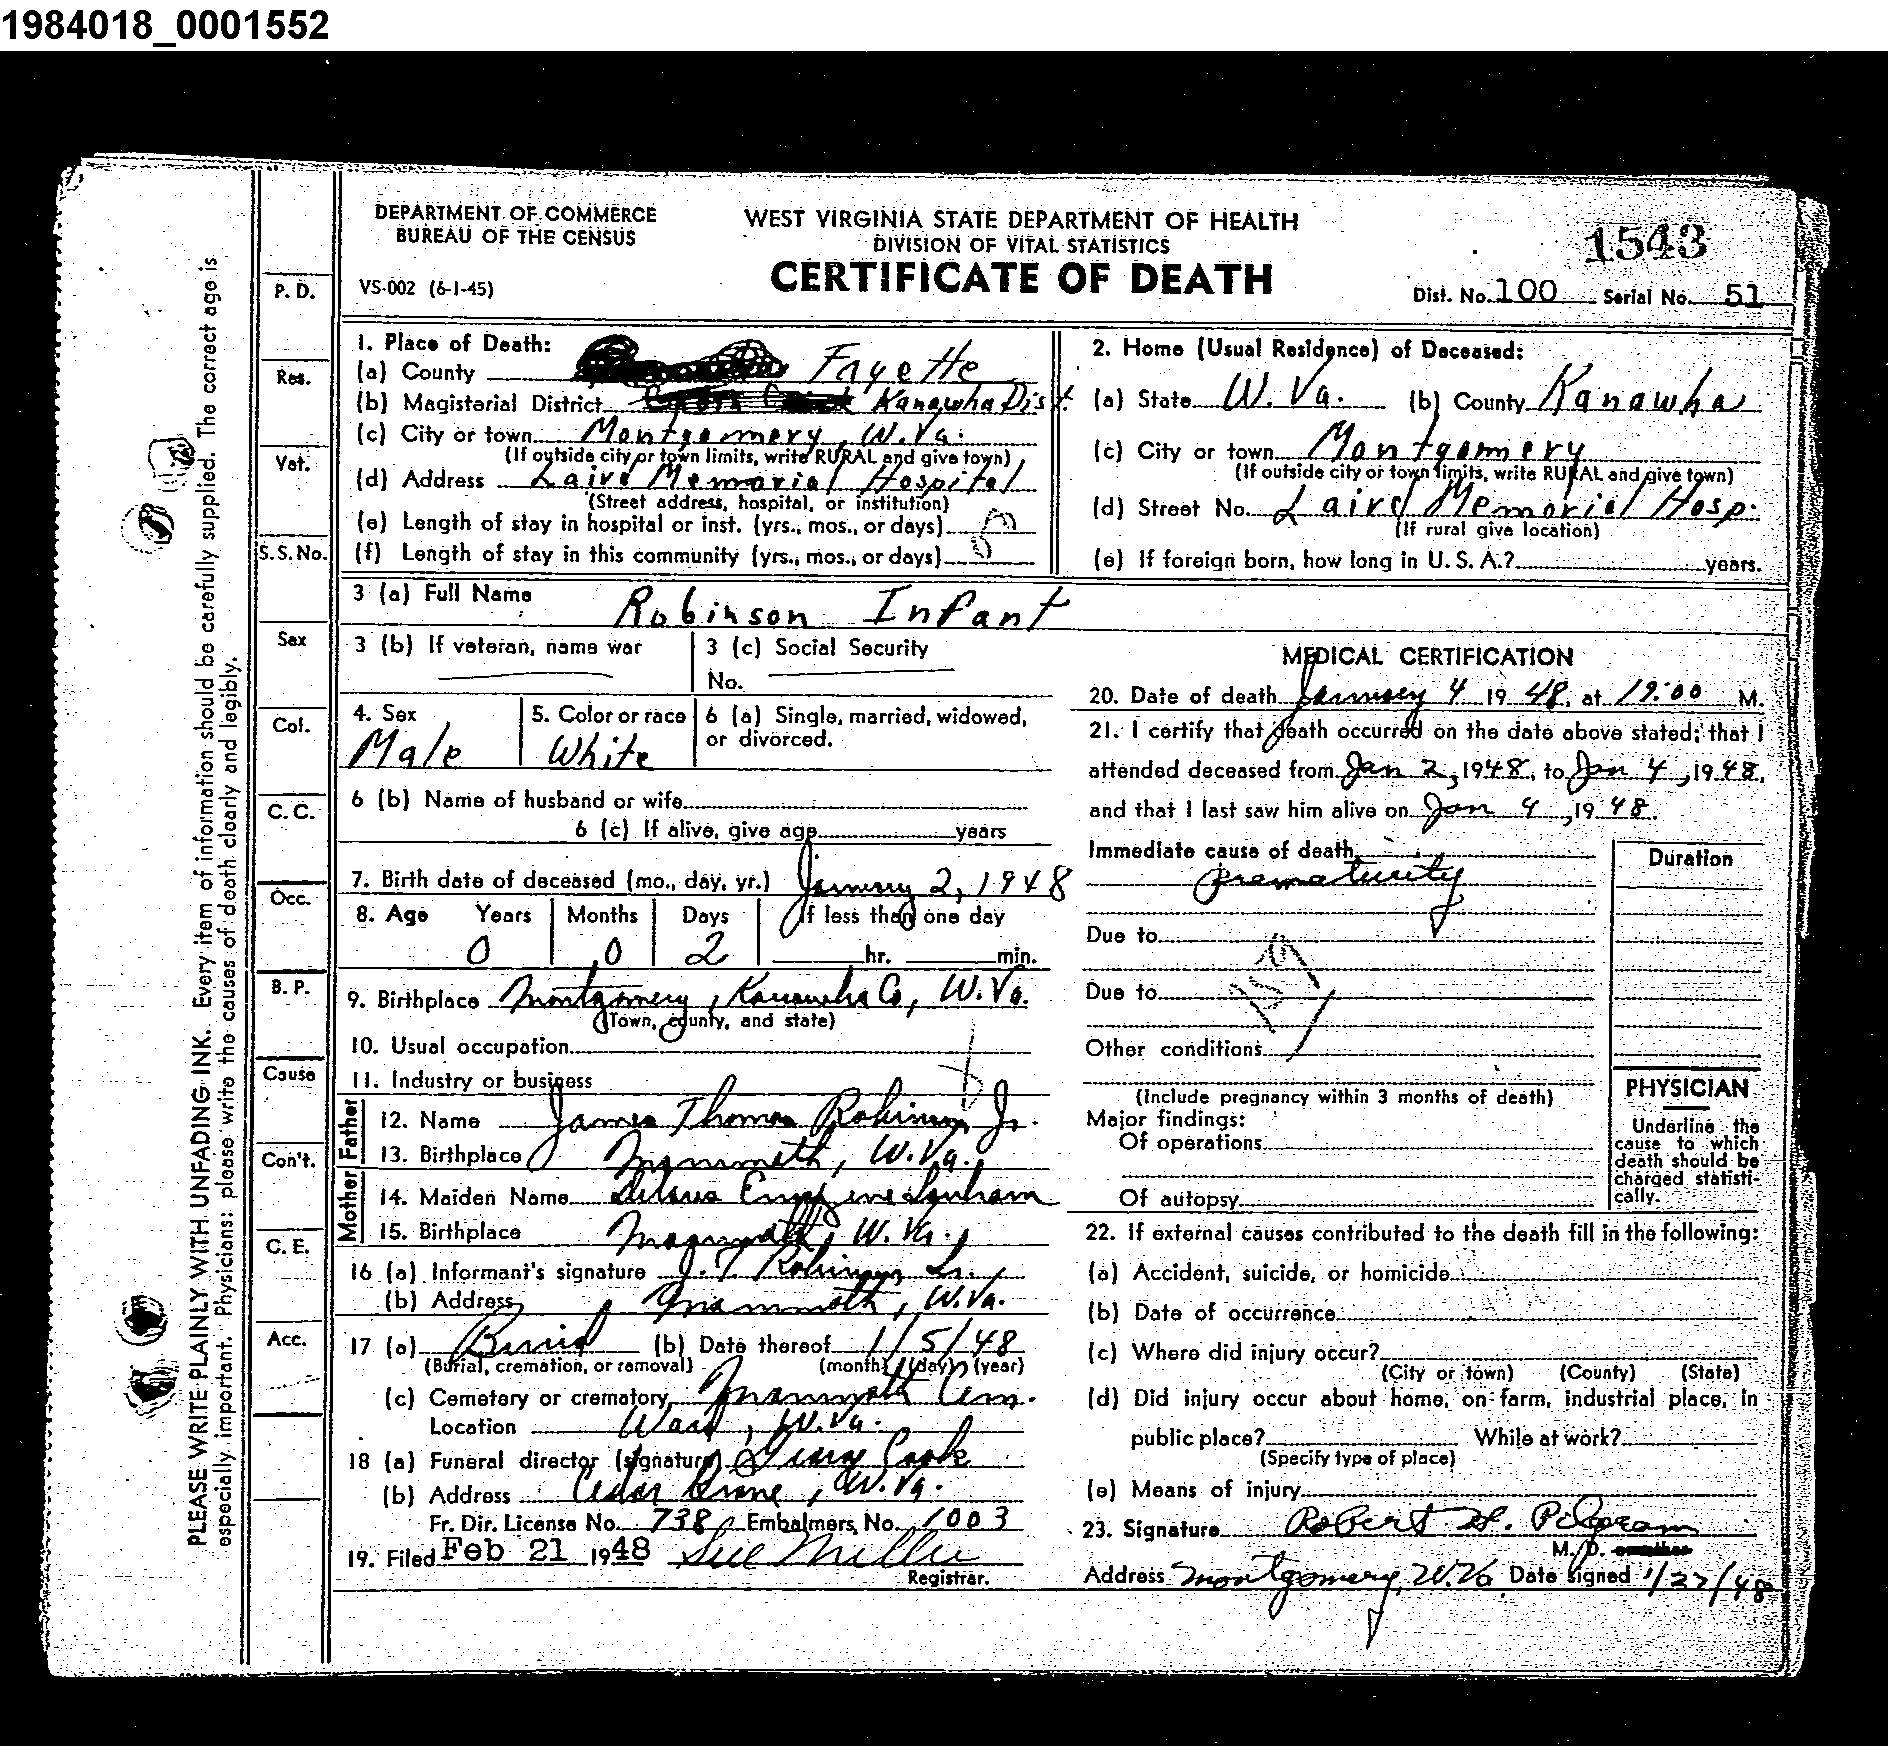 1984018_0001552
DEPARTMENT OF COMMERCE
BUREAU OF THE CENSUS
WEST VIRGINIA STATE DEPARTMENT OF HEALTH
DIVISION OF VITAL STATISTICS
CERTIFICATE OF DEATH
VS-002 (6-1-45)
1543
Dist. No. 100 Serial No. 51
PLEASE WRITE PLAINLY WITH UNFADING INK. Every item of information should be carefully supplied. The correct age is
especially important. Physicians: please write the causes of death clearly and legibly.
P. D.
Res.
Vet.
S.S. No.
Sex
Col.
C. C.
Occ.
B. P.
Cause
Con't.
C. E.
Acc.
1. Place of Death:
(a) County Fayette
(b) Magisterial District Kanawha Dist.
(c) City or town Montgomery, W.Va.
(If outside city or town limits, write RURAL and give town)
(d) Address Laird Memorial Hospital
(Street address, hospital, or institution)
(e) Length of stay in hospital or inst. (yrs., mos., or days)
(f) Length of stay in this community (yrs., mos., or days)
2. Home (Usual Residence) of Deceased:
(a) State W. Va. (b) County Kanawha
(c) City or town Montgomery
(If outside city or town limits, write RURAL and give town)
(d) Street No. Laird Memorial Hosp.
(If rural give location)
(e) If foreign born, how long in U. S. A.? years.
3 (a) Full Name Robinson Infant
3 (b) If veteran, name war
3 (c) Social Security
No.
4. Sex
Male
5. Color or race
White
6 (a) Single, married, widowed,
or divorced.
6 (b) Name of husband or wife
6 (c) If alive, give age years
7. Birth date of deceased (mo., day, yr.) January 2, 1948
8. Age Years Months Days If less than one day
0 0 2 hr. min.
9. Birthplace Montgomery, Kanawha Co, W. Va.
(Town, county, and state)
10. Usual occupation
11. Industry or business
Father
12. Name James Thomas Robinson Jr.
13. Birthplace Mammoth, W. Va.
Mother
14. Maiden Name
15. Birthplace Mammoth, W. Va.
16 (a) Informant's signature J. T. Robinson Sr.,
(b) Address Mammoth, W. Va.
17 (a) Burial (b) Date thereof 1/5/48
(Burial, cremation, or removal) (month) (day) (year)
(c) Cemetery or crematory Mammoth Cem.
Location Ward, W. Va.
18 (a) Funeral director (signature) Cook
(b) Address Cedar Grove, W. Va.
Fr. Dir. License No. 738 Embalmers No. 1003
19. Filed Feb 21 1948 Sue Miller
Registrar.
MEDICAL CERTIFICATION
20. Date of death January 4 19 48, at M.
21. I certify that death occurred on the date above stated; that I
attended deceased from Jan 2, 1948, to Jan 4, 1948,
and that I last saw him alive on Jan 4, 1948.
Immediate cause of death
prematurity
Duration
Due to
Due to
Other conditions
(Include pregnancy within 3 months of death)
Major findings:
Of operations
Of autopsy
PHYSICIAN
Underline the
cause to which
death should be
charged statisti-
cally.
22. If external causes contributed to the death fill in the following:
(a) Accident, suicide, or homicide
(b) Date of occurrence
(c) Where did injury occur?
(City or town) (County) (State)
(d) Did injury occur about home, on farm, industrial place, in
public place? While at work?
(Specify type of place)
(e) Means of injury
23. Signature Robert
M. D.
Address Montgomery, W. Va. Date signed 1/27/48